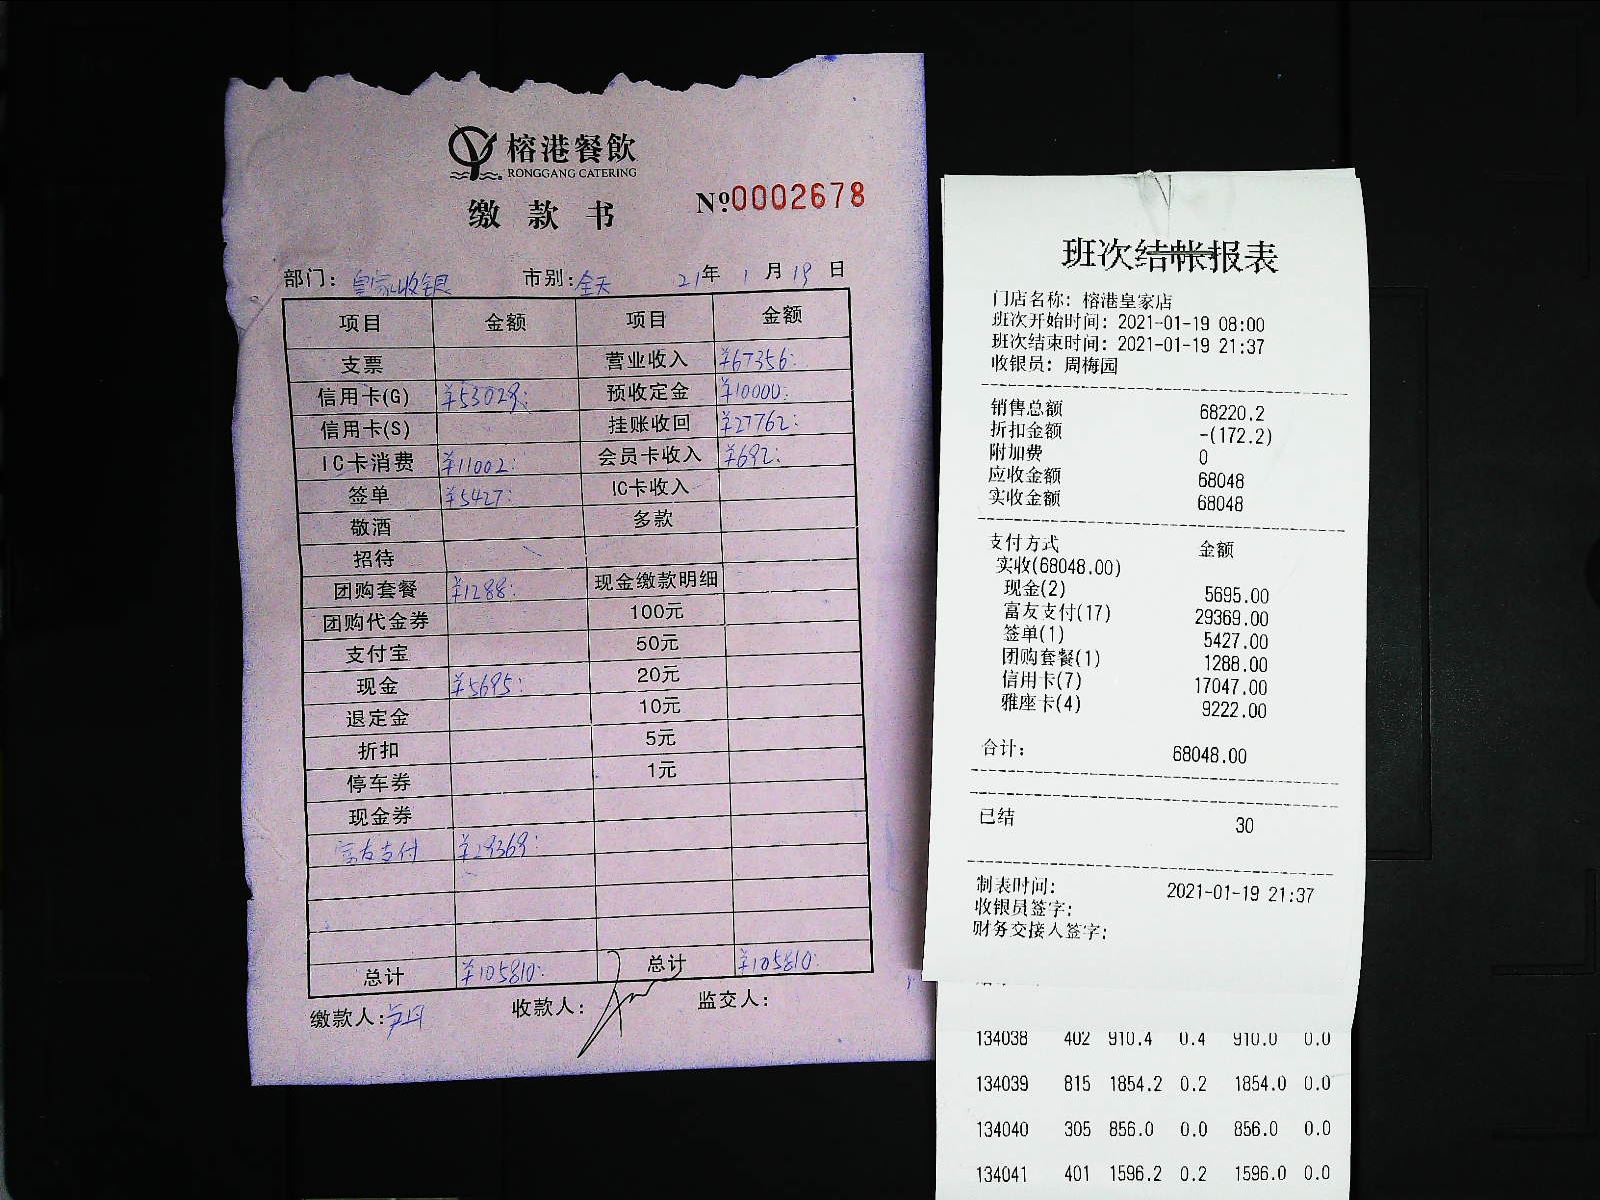 榕港餐飲
RONGGANG CATERING
缴款书
No 0002678
部门：皇家收银 市别：全天 21年 1月 19日
项目 金额 项目 金额
支票 营业收入 ¥67356:
信用卡(G) ¥53029: 预收定金 ¥10000:
信用卡(S) 挂账收回 ¥27762:
IC卡消费 ¥11002: 会员卡收入 ¥692:
签单 ¥5427: IC卡收入
敬酒 多款
招待
团购套餐 ¥1288: 现金缴款明细
团购代金券 100元
支付宝 50元
现金 ¥5695: 20元
退定金 10元
折扣 5元
停车券 1元
现金券
富友支付 ¥29369:
总计 ¥105810: 总计 ¥105810:
缴款人: 收款人: 监交人:
班次结帐报表
门店名称: 榕港皇家店
班次开始时间: 2021-01-19 08:00
班次结束时间: 2021-01-19 21:37
收银员: 周梅园
销售总额 68220.2
折扣金额 -(172.2)
附加费 0
应收金额 68048
实收金额 68048
支付方式 金额
实收(68048.00)
现金(2) 5695.00
富友支付(17) 29369.00
签单(1) 5427.00
团购套餐(1) 1288.00
信用卡(7) 17047.00
雅座卡(4) 9222.00
合计: 68048.00
已结 30
制表时间: 2021-01-19 21:37
收银员签字:
财务交接人签字:
134038 402 910.4 0.4 910.0 0.0
134039 815 1854.2 0.2 1854.0 0.0
134040 305 856.0 0.0 856.0 0.0
134041 401 1596.2 0.2 1596.0 0.0